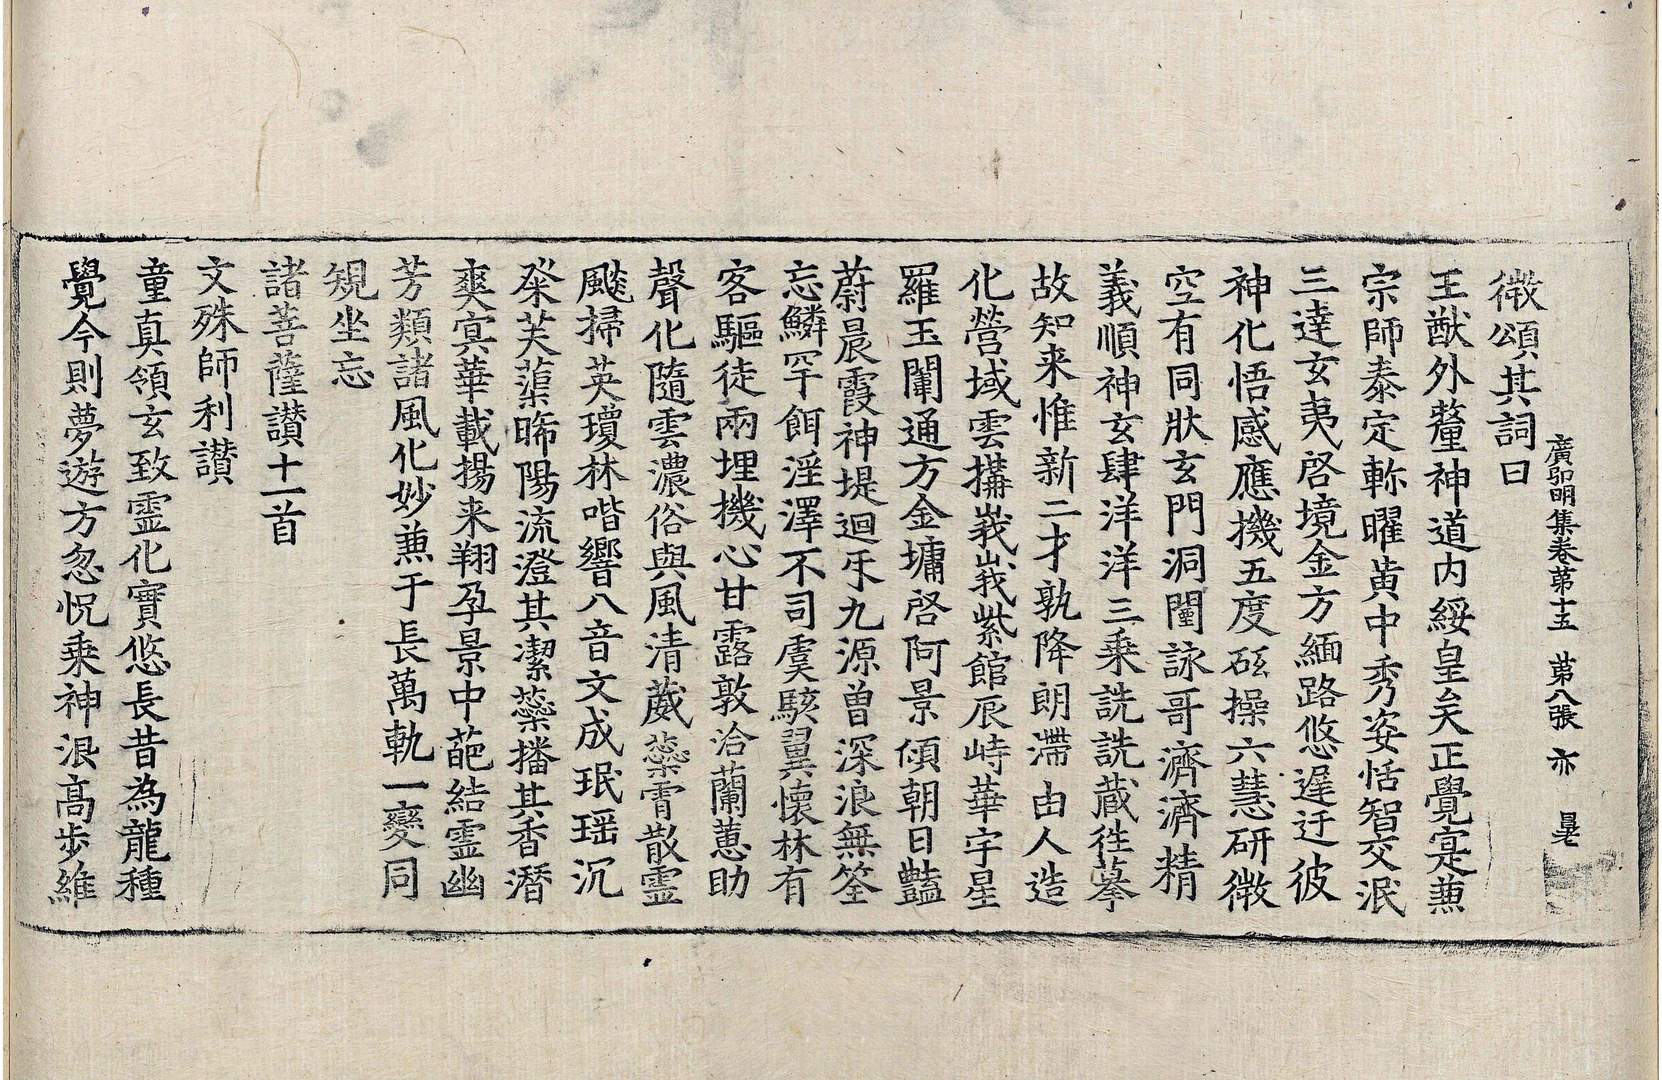 徴頌其詞曰
廣弘明集卷苐十五　苐八張　亦
王猷外釐神道内綏皇矣正覺寔蕪
宗師泰定軫曜黄中秀姿恬智交泯
三達玄夷啓境金方緬路悠遅迂彼
神化悟感應機五度砥操六慧研徴
空有同狀玄門洞闡詠哥濟濟精
義順神玄肆洋洋三乗詵詵蔵徃摹
故知来惟新二才孰降朗滯由人造
化營域雲搆峩峩紫館辰峙華宇星
羅玉闈通方金墉啓阿景傾朝日豔
蔚晨霞神堤迴㸦九源曽深浪無筌
忘鱗罕餌淫澤不司虞駭翼懷林有
客驅徒兩埋機心甘露敦洽蘭蕙助
聲化隨雲濃俗與風清葳蘂霄散霊
飈掃英瓊林喈響八音文成珉瑶沉
粲芙蕖晞陽流澄其潔蘂播其香潛
爽㝠華載揚来翔孕景中葩結霊幽
芳類諸風化妙蕪于長萬軌一變同
規坐忘
諸菩薩讃十一首
文殊師利讃
童真領玄致霊化實悠長昔為龍種
覺今則夢遊方忽怳乗神浪高步維